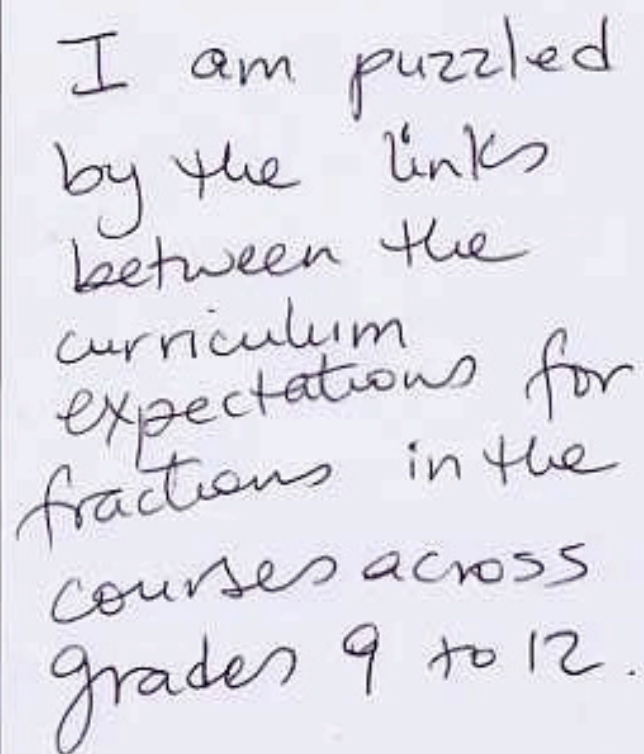 I am puzzled
by the links
between the
curriculum
expectations for
fractions in the
courses across
grades 9 to 12.